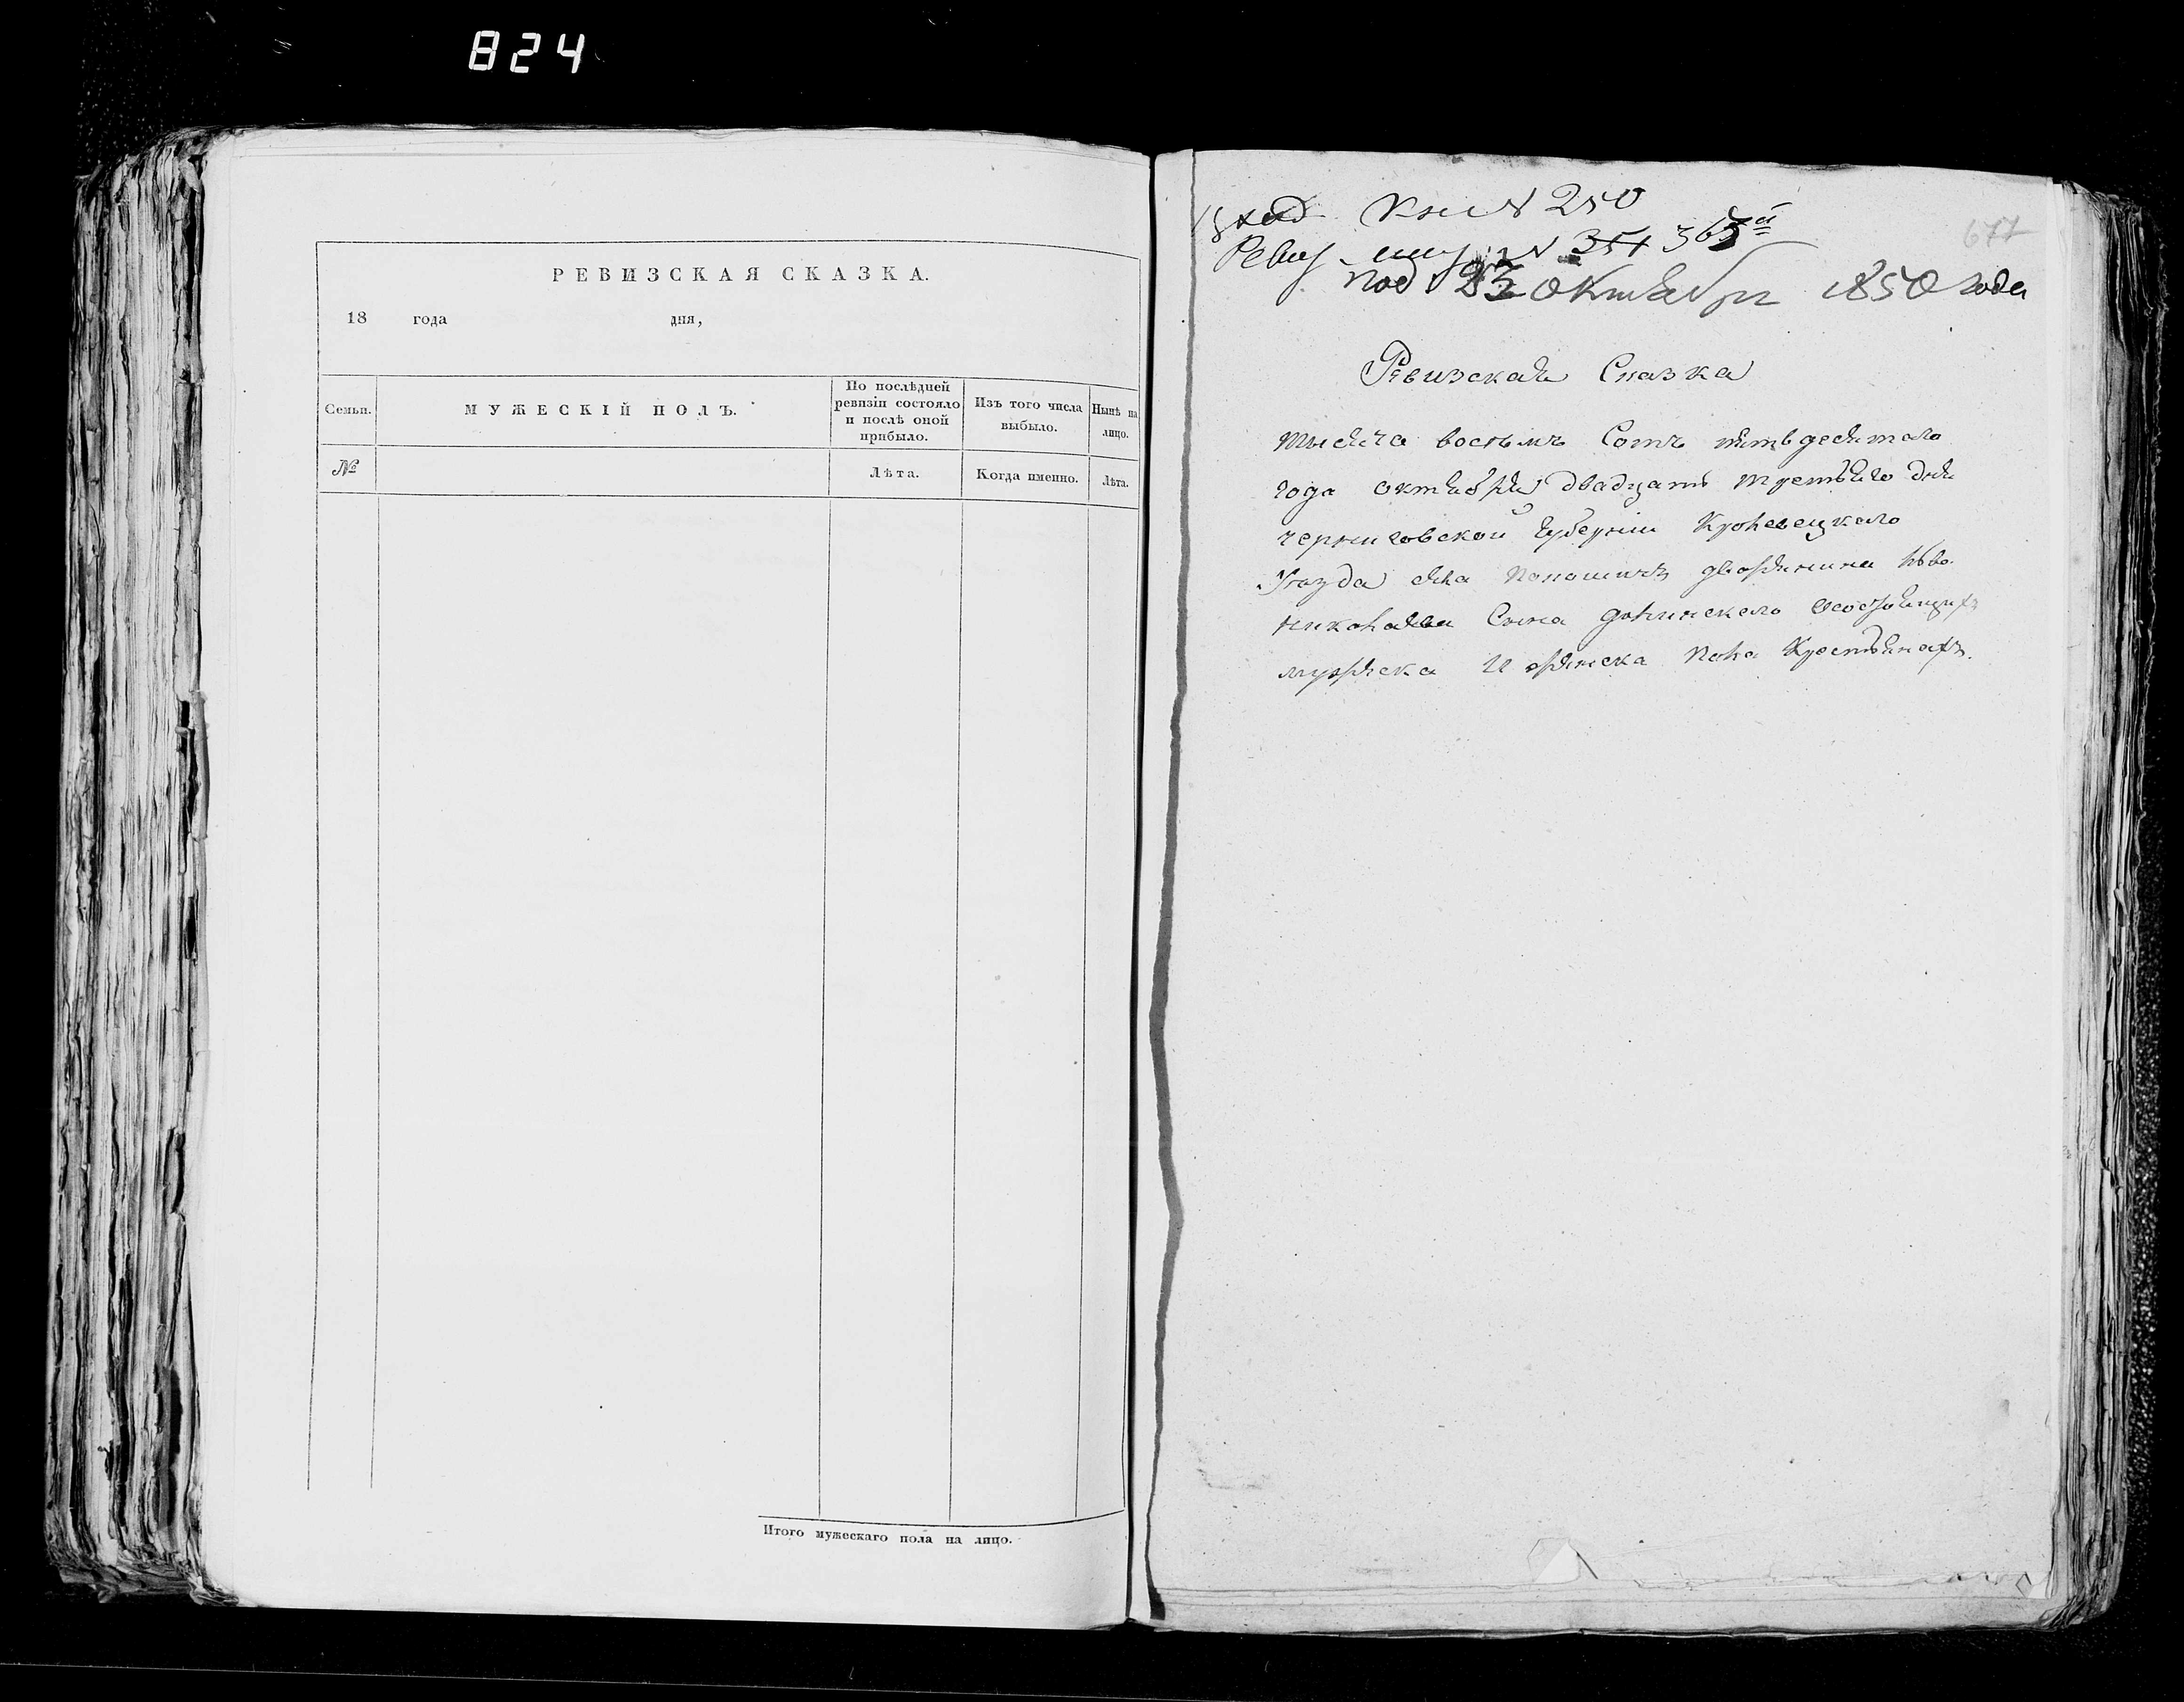 824
РЕВИЗСКАЯ СКАЗКА.
18 года дня,
Семьи.
МУЖЕСКІЙ ПОЛЪ.
По послѣдней
ревизіи состояло
и послѣ оной
прибыло.
Изъ того числа
выбыло.
Нынѣ на
лицо.
№
Лѣта.
Когда именно.
Лѣта.
Итого мужескаго пола на лицо.
№ 250
Ревиз. № 351 363й
677
под 23 октября 1850 года
Ревизская Сказка
тысяча восьмъ Сотъ пятьдесятаго
года октября двадцать третьяго дня
черниговской Губерніи Кролевецкаго
Уезда села дворянина
николаева Сына
мужеска И женска пола Крестьянахъ.